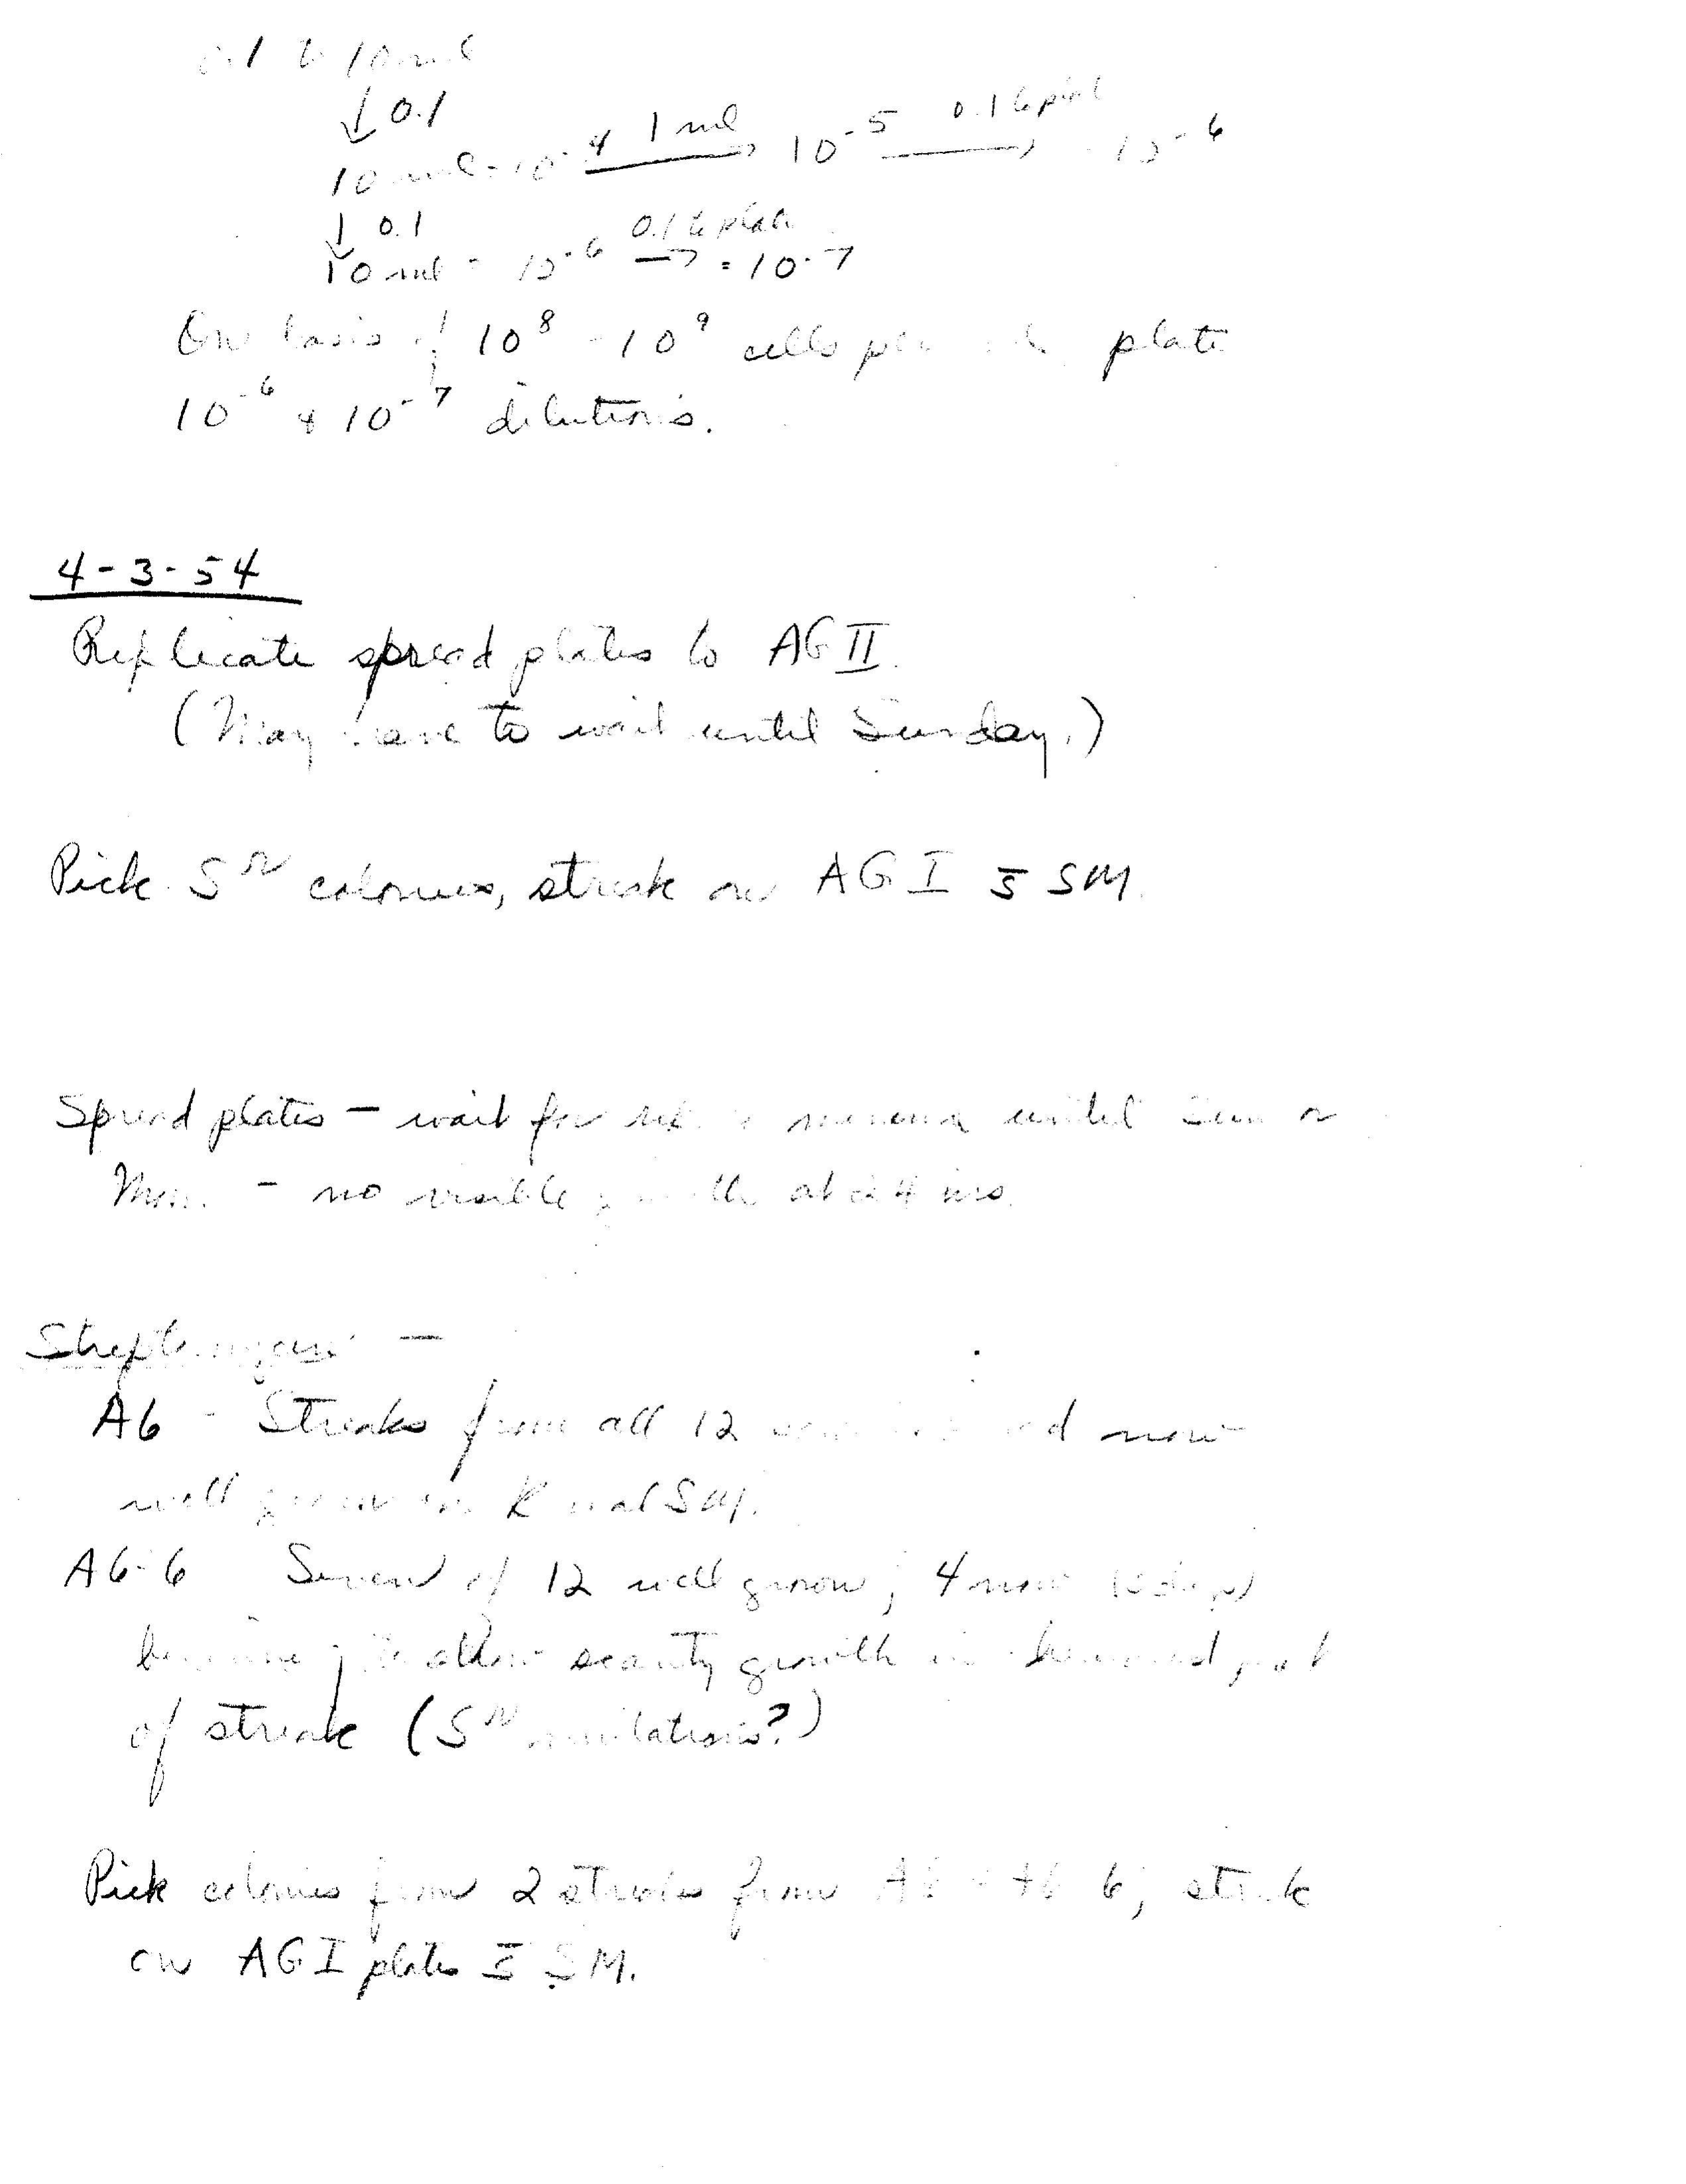 0.1 to 10 ml
↓ 0.1
10 ml = 10⁻⁴ 1 ml → 10⁻⁵ 0.1 to plate → 10⁻⁶
↓ 0.1
10 ml = 10⁻⁶ 0.1 to plate → = 10⁻⁷
On basis of 10⁸ - 10⁹ cells per plate
10⁻⁶ & 10⁻⁷ dilutions.
4-3-54
Replicate spread plates to AG II.
(May have to wait until Sunday.)
Pick Sʳ colonies, streak on AG I s̄ SM.
Spread plates – wait for until Sun or
Mon. – no visible growth at 24 hrs.
Streptomycin –
A6 - Streaks from all 12 now
well grown on SM.
A6-6 Seven of 12 well grown; 4 now
scanty growth in
of streak (Sʳ mutations?)
Pick colonies from 2 streaks from A6 A6-6; streak
on AG I plates s̄ SM.